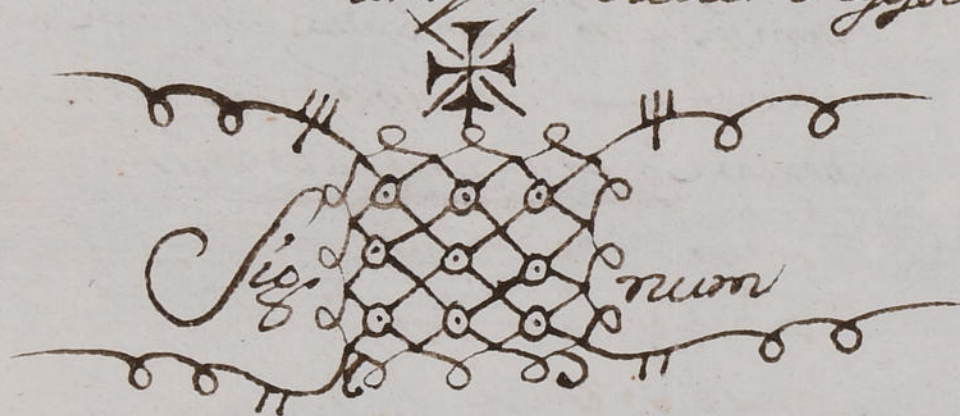 Sig num